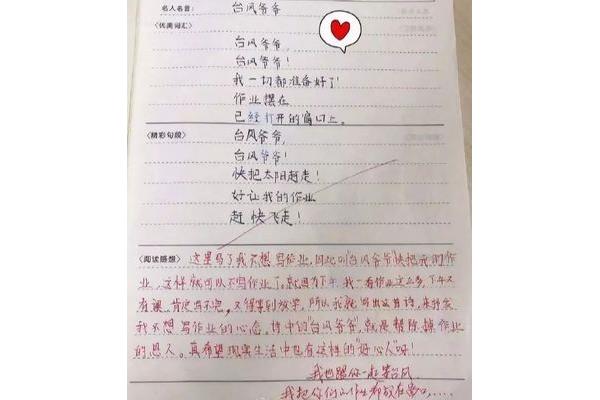 名人名言: 台风爷爷
〈优美词汇〉
台风爷爷,
台风爷爷!
我一切都准备好了!
作业摆在
已经打开的窗口上。
〈精彩句段〉 台风爷爷,
台风爷爷!
快把太阳赶走!
好让我的作业
赶快飞走!
〈阅读感想〉 这里写了我不想写作业,因此叫"台风爷爷"快把我的作
业,这样就可以不写作业了。就因为下午我一看作业这么多,下午又
有课,肯定写不完,又得等到放学,所以我就写出这首诗,来抒发
我不想写作业的心态。诗中的"台风爷爷",就是帮除掉作业
的恩人。真希望现实生活中也有这样的"好心人"呀!
我也跟你一起等台风
我把你们的作业都放在窗口,……